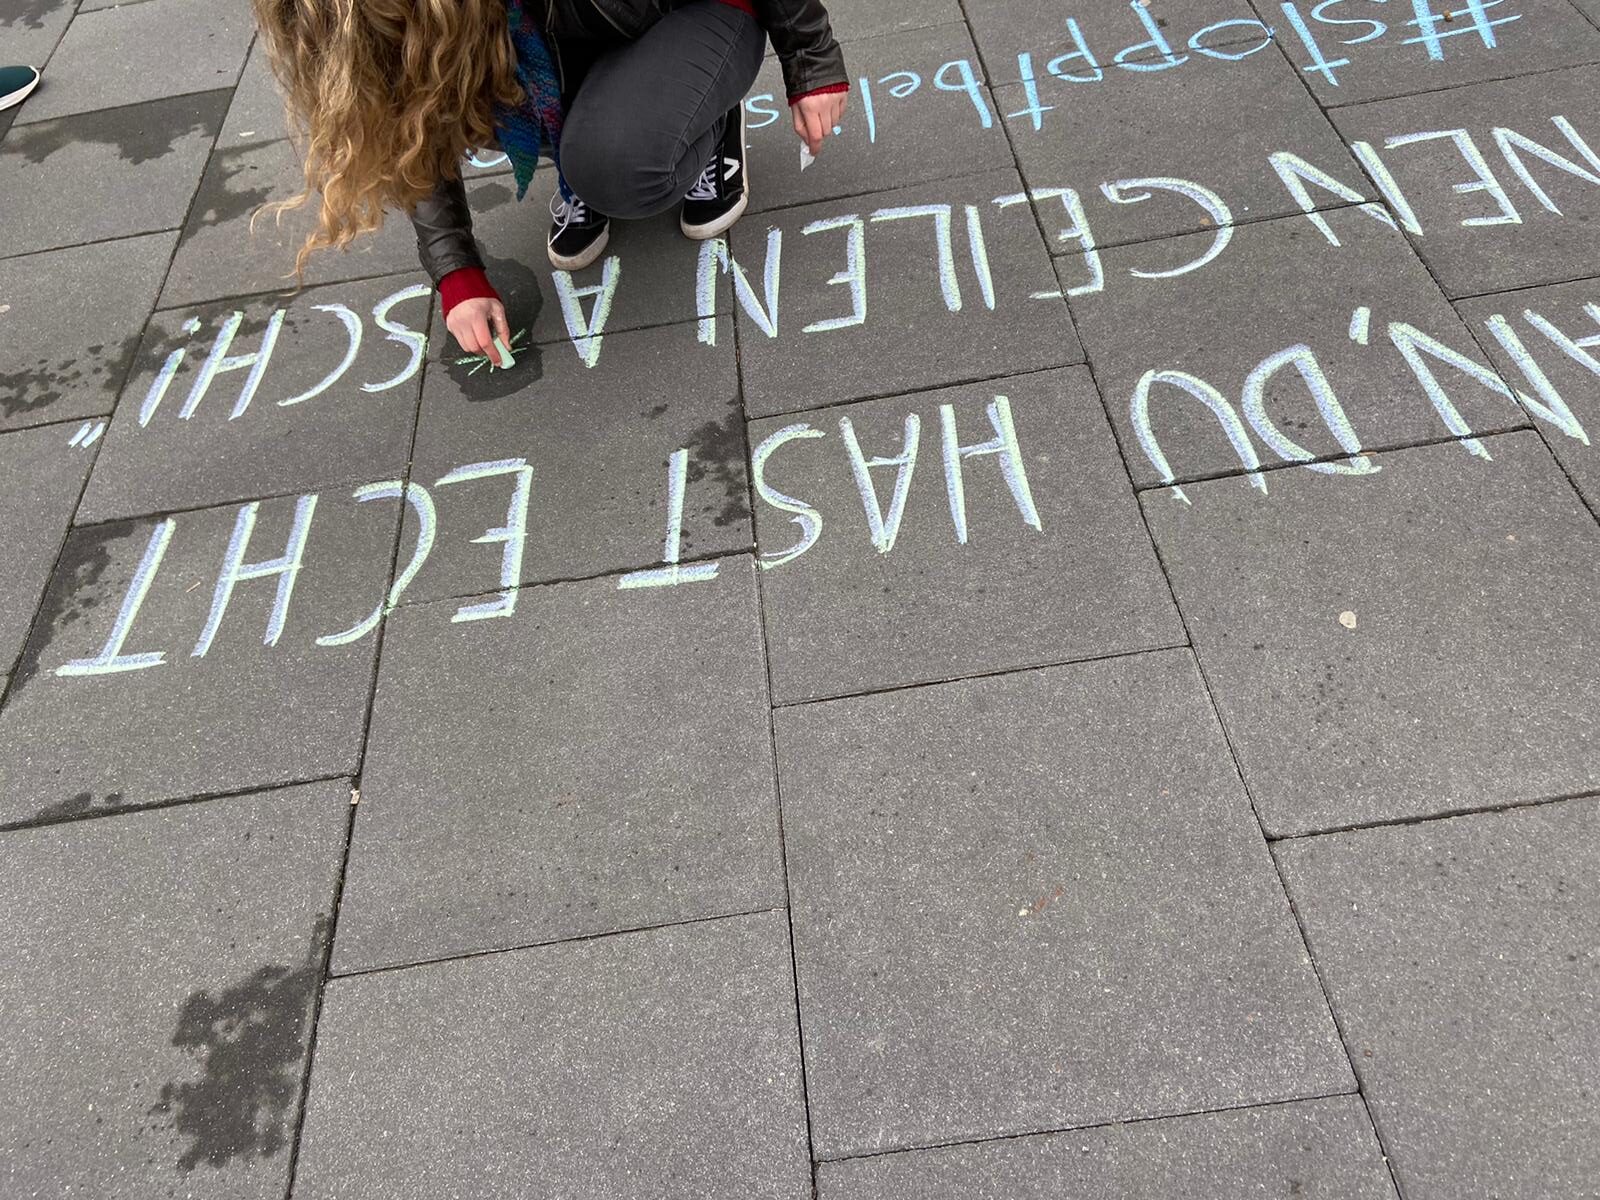 AN, DU HAST ECHT
NEN GEILEN A*SCH!"
#stoppt